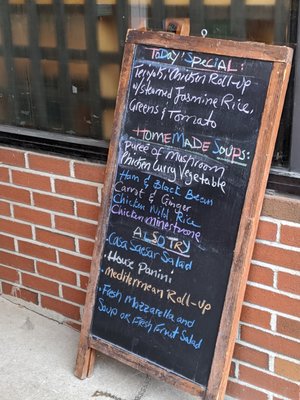 Today Special:
Teriyaki Chicken Roll-up
w/steamed Jasmine Rice,
Greens & Tomato
HOMEMADE SOUPS:
Puree of Mushroom
Chicken Curry Vegetable
Ham & Black Bean
Carrot & Ginger
Chicken Wild Rice
Chicken minestrone
ALSO TRY
Casa Caesar Salad
• House Panini
• Mediterranean Roll-up
• Fresh Mozzarella and
Soup or Fresh Fruit Salad